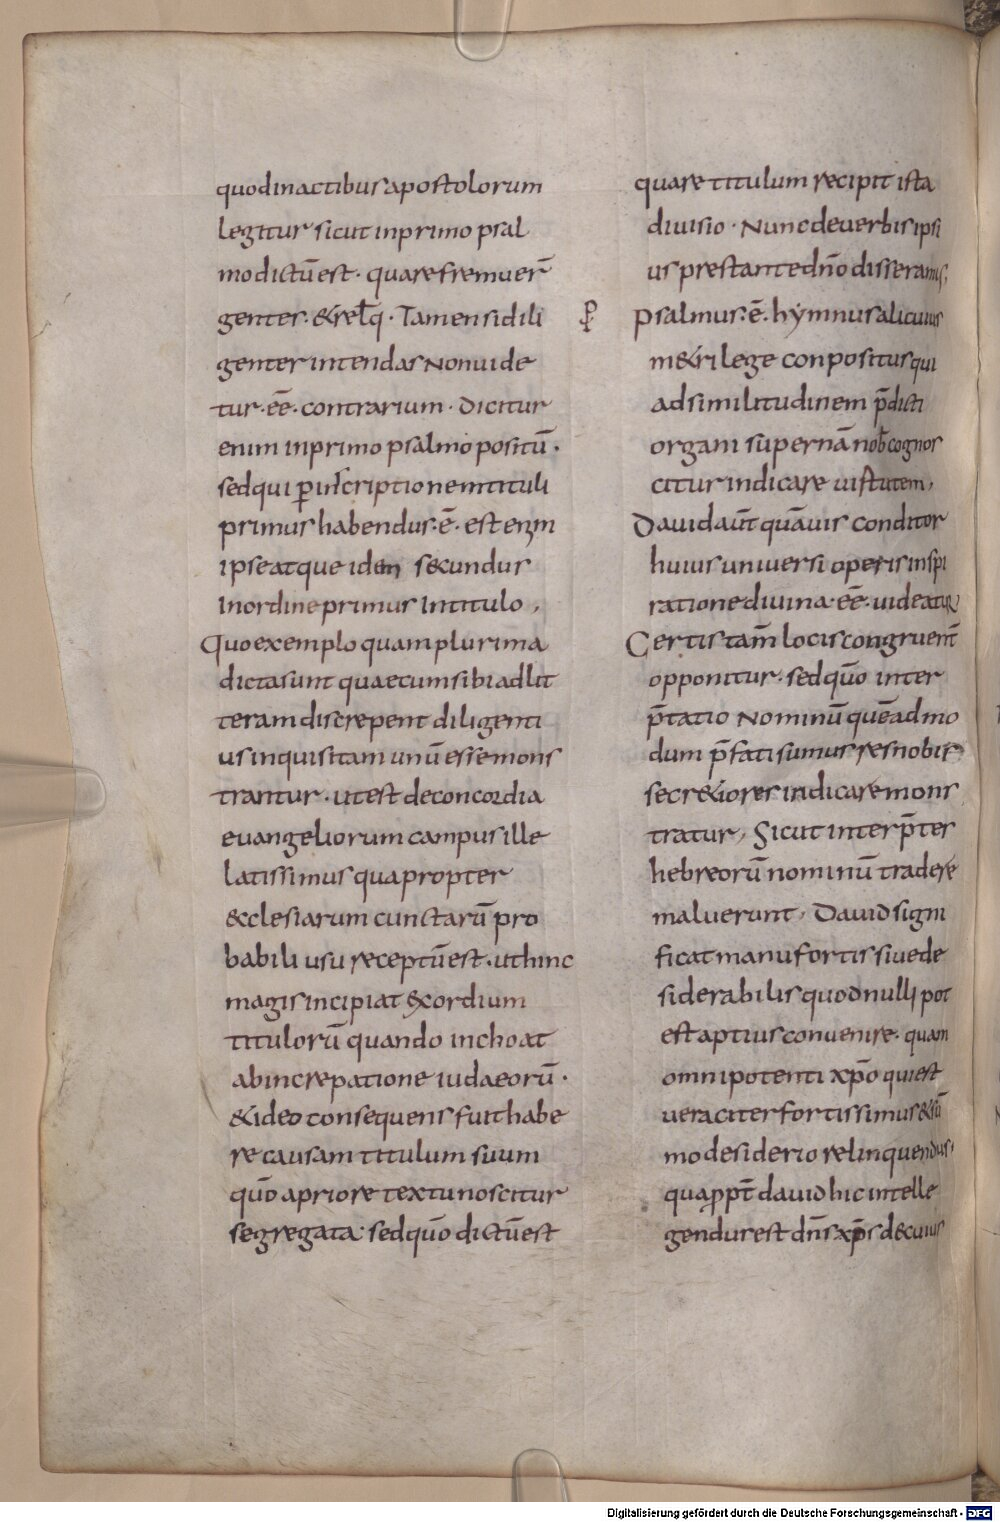 quod in actibus apostolorum
legitur sicut in primo psal
mo dictū est · quare fremuer̄
gentes · & rel̄q · Tamen si dili
genter intendas Non uide
tur · eē · contrarium · Dicitur
enim in primo psalmo positū ·
sed qui p̱ inscriptionem tituli
primus habendus · ē · est enim
ipse atque idem secundus
in ordine primus In titulo ,
Quo exemplo quam plurima
dicta sunt quae cum sibi ad lit
teram discrepent diligenti
us inquisita in unū esse mons
trantur · ut est de concordia
euangeliorum campus ille
latissimus qua propter
&cclesiarum cunctarū pro
babili usu receptū est · ut hinc
magis incipiat &xordium
titulorū quando inchoat
ab increpatione iudaeorū ·
& ideo consequens fuit habe
re causam titulum suum
quō a priore textu noscitur
segregata · sed quō dictū est
quare titulum recipit ista
diuisio · Nunc de uerbis ipsi
us prestante dn̄o disseramus,
Psalmus · ē · hymnus alicuius
m&ri lege conpositus qui
ad similitudinem p̄dicti
organi supernā nob̄ cognos
citur indicare uirtutem,
Dauid aūt quāuis conditor
huius uniuersi operis inspi
ratione diuina · eē · uideatur
Certis tam̄ locis congruent̄
opponitur · sed quō inter
p̄tatio Nominū quēadmo
dum p̄fati sumus res nobis
secr&iores indicare mons
tratur, Sicut interp̄ter
hebreorū nominū tradere
maluerunt, Dauid signi
ficat manu fortis siue de
siderabilis quod nulli pot
est aptius conuenire · quam
omnipotenti xp̄o qui est
ueraciter fortissimus & sū
mo desiderio relinquendus ·
quapp̄t dauid hic intelle
gendus est dn̄s xp̄s de cuius